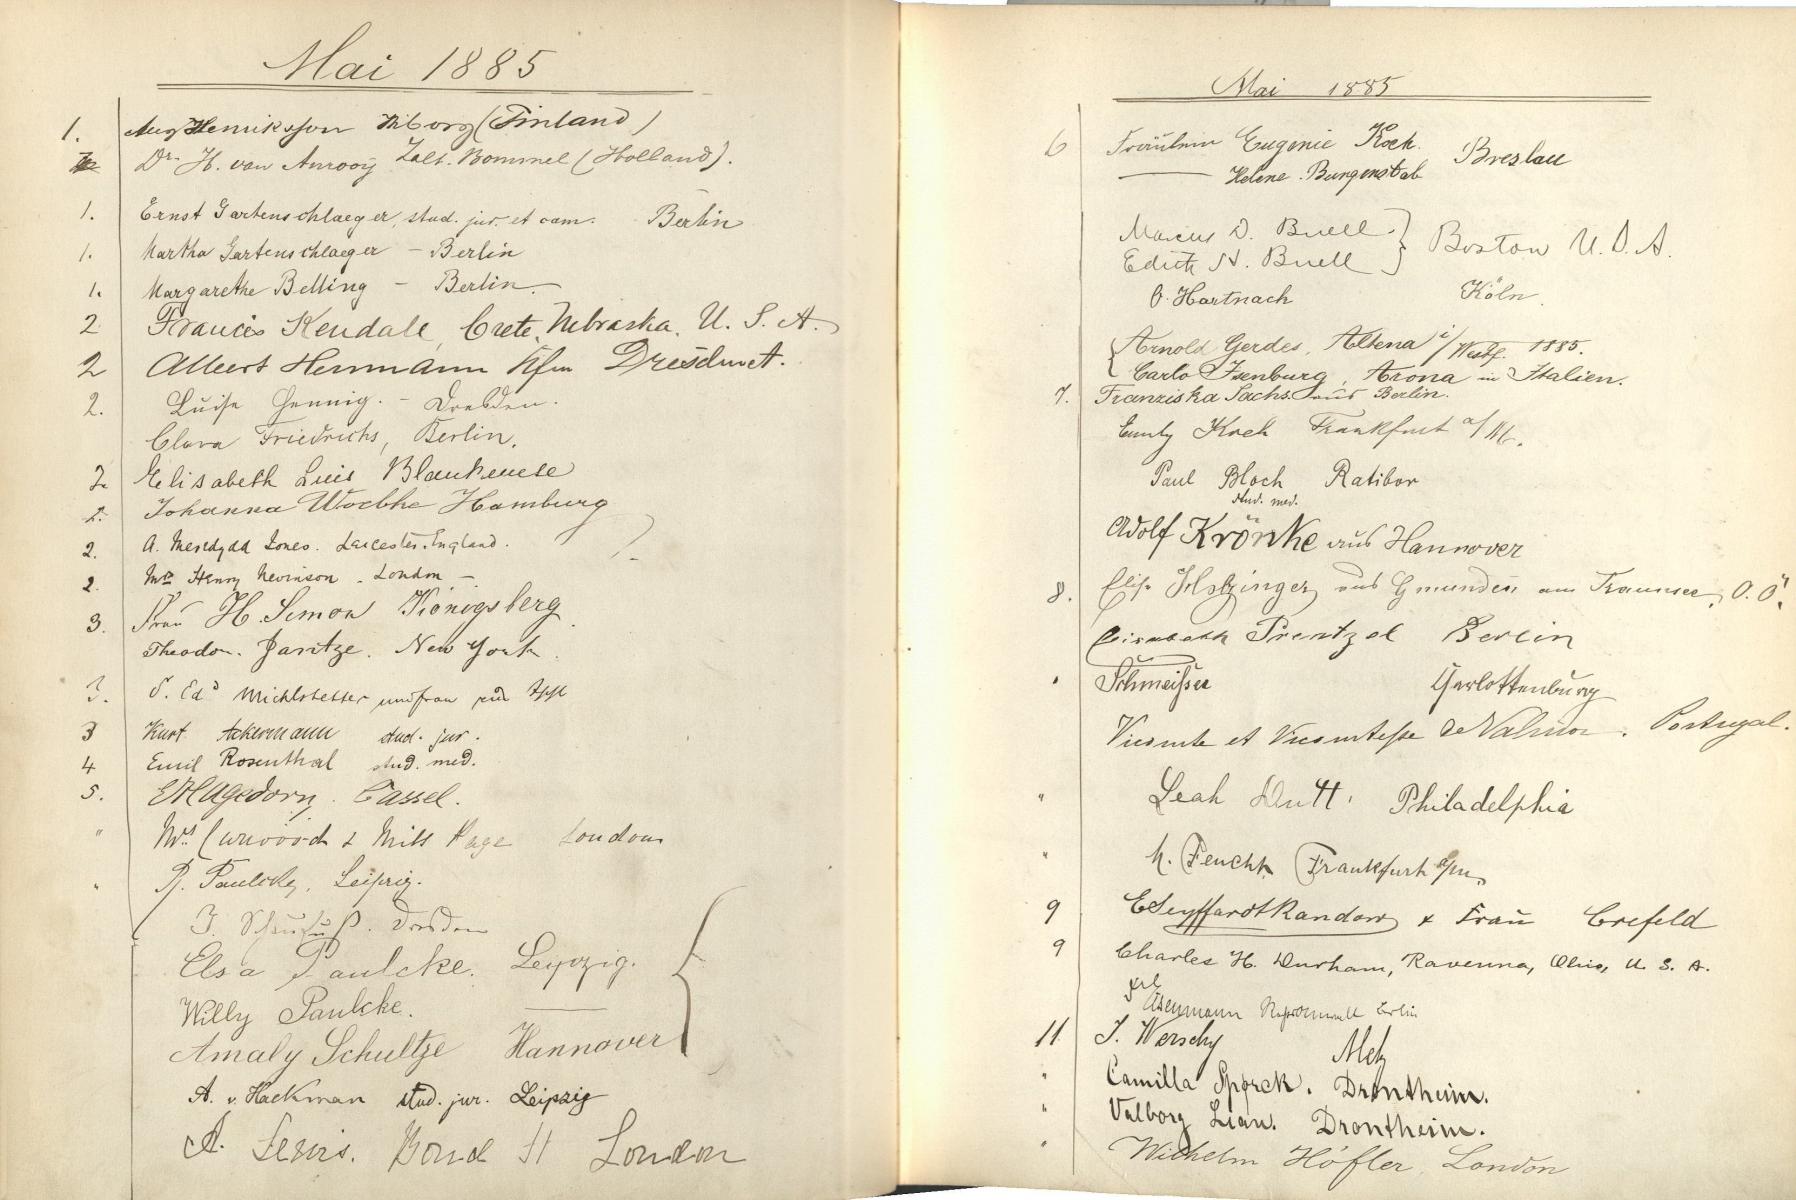 Mai 1885
1. Aug Henriksson Wiborg (Finland)
Dr. H. van Anrooij Zalt-Bommel (Holland).
1. Ernst Gartenschlaeger, stud. jur. et cam. Berlin
1. Martha Gartenschlaeger – Berlin
1. Margarethe Belling – Berlin.
2 Francis Kendall, Crete, Nebraska. U. S. A.
2 Albert Herrmann Kfm Dresden
2. Luise Hennig. – Dresden.
Clara Friedrichs, Berlin.
2. Elisabeth Luis Blankenese
2. Johanna Woebke Hamburg
2. A. Meredydd Jones. Leicester. England.
2. Mrs Henry Nevinson – London –
3. Frau H. Simon Königsberg.
Theodor Jaritze. New York.
3. Michlstetter und Frau
3 Kurt Ackermann stud. jur.
4 Emil Rosenthal stud. med.
5. E Hagedorn. Cassel.
" Mrs Curwood & Miss Page London
" P. Paulcke, Leipzig.
J. Dresden
Elsa Paulcke. Leipzig.
Willy Paulcke. ——
Amaly Schultze Hannover
A. v. Hackman stud. jur. Leipzig
A. Lewis. Bond St London
Mai 1885
6 Fräulein Eugenie Koch. Breslau
—— Helene Burgenstab
Marcus D. Buell } Boston U. S. A.
Edith H. Buell
O. Hartnach Köln.
Arnold Gerdes, Altena i/Westf. 1885.
Carlo Isenburg, Arona in Italien.
7. Franziska Sachs aus Berlin.
Emily Koch Frankfurt a/M.
Paul Bloch Ratibor
stud. med.
Adolf Krönke aus Hannover
8. Elise Holzinger aus Gmunden am Traunsee, O. Ö.
Elisabeth Prentzel Berlin
Schmeisser Charlottenburg
Vicomte et Vicomtesse de Valmor. Portugal.
" Leah Dutt. Philadelphia
" M. Feucht. Frankfurt a/m.
9 E Seyffardt Randow & Frau Crefeld
9 Charles H. Durham, Ravenna, Ohio, U. S. A.
Assmann Berlin
11 J. Werschy Metz
" Camilla Sporck. Drontheim.
" Valborg Lian. Drontheim.
" Wilhelm Höfler, London